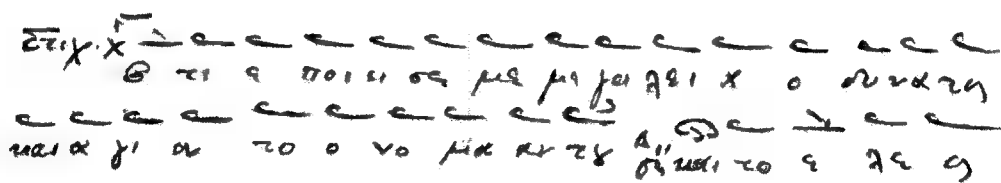 Στιχ.
ο τι ε ποι η σε με με γα λει α ο δυ να τος
και α γι ον το ο νο μα αυ του και το ε λε ος